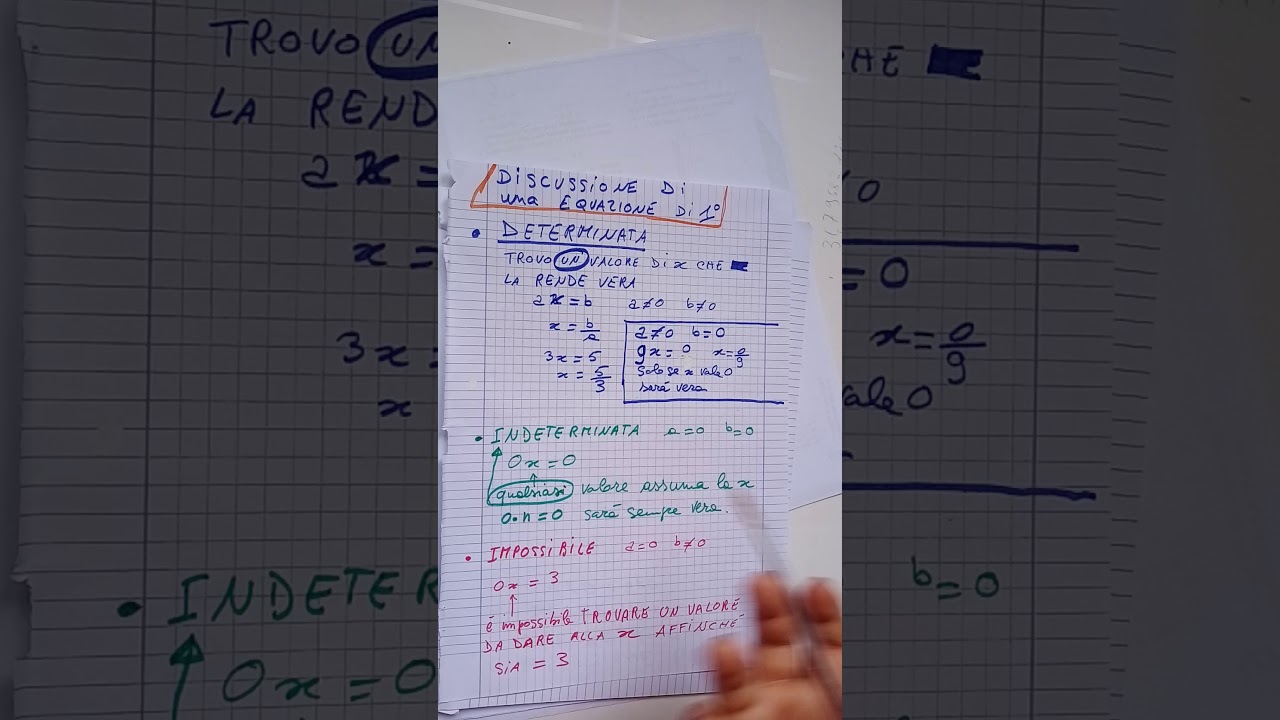 DISCUSSIONE Di
una EQUAZIONE Di 1°
• DETERMINATA
TROVO UN VALORE Di x CHE
LA RENDE VERA
ax = b a≠0 b≠0
x = b/a
3x = 5
x = 5/3
a≠0 b=0
9x = 0 x = 0/9
solo se x vale 0
sará vera
• INDETERMINATA a=0 b=0
0x = 0
qualsiasi valore assuma la x
0·n=0 sará sempre vera.
• IMPOSSIBILE a=0 b≠0
0x = 3
é impossibile TROVARE UN VALORE
DA DARE ALLA x AFFINCHÉ
SIA = 3